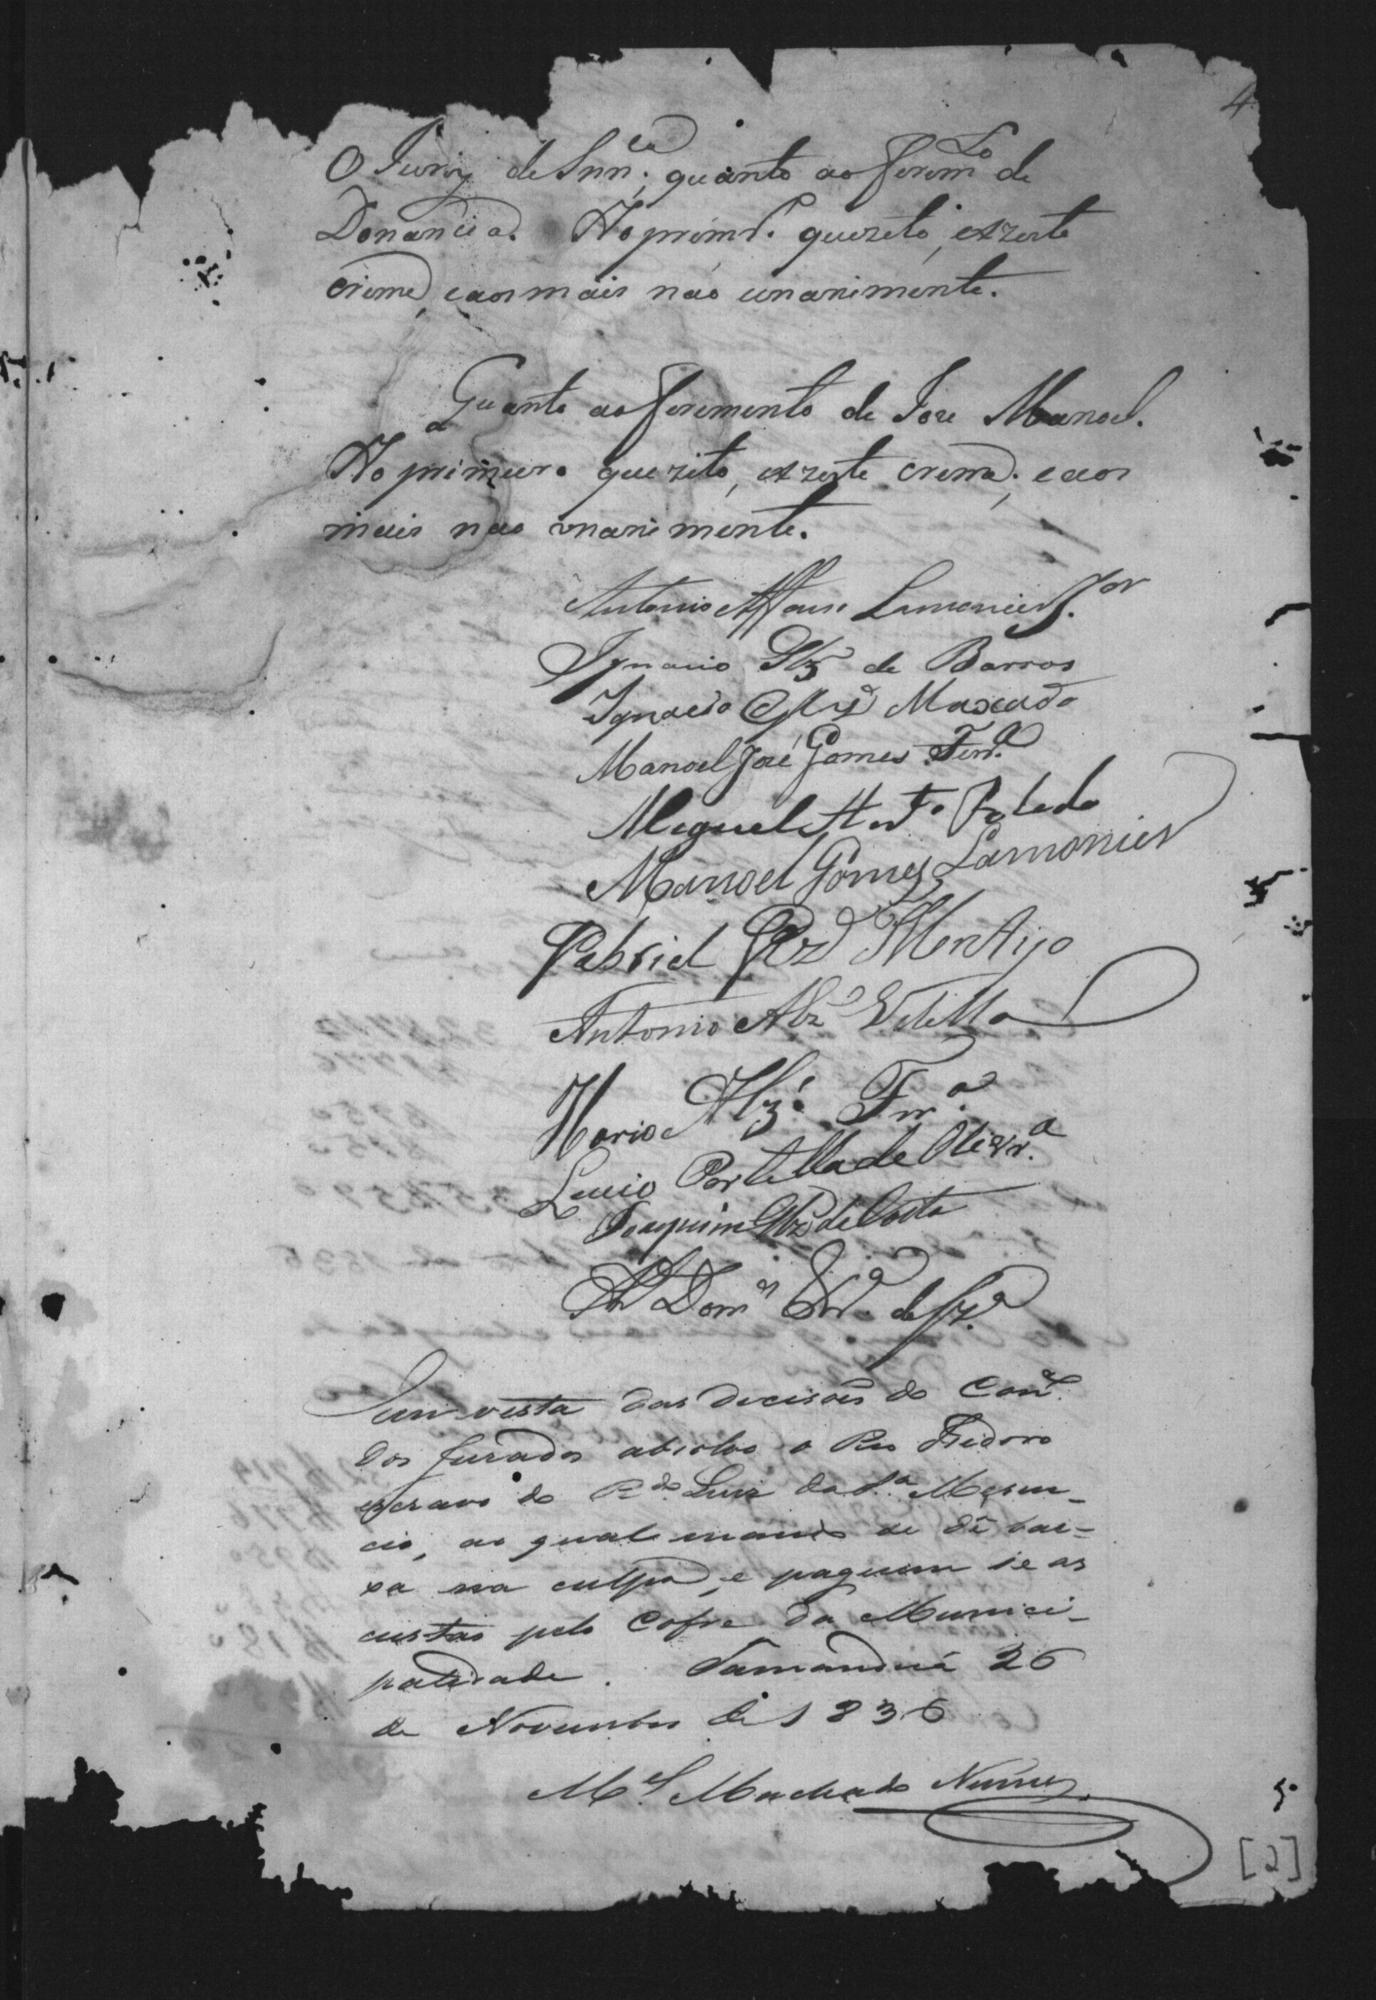 4
O Jury de Snn.ca, quanto ao ferim.to de
Donancia. Ao prim.ro quezito, exzeste
crime, e aos mais não unanimente.
Quanto ao ferimento de Joze Manoel.
Ao primeiro quezito, exzeste crime, e aos
mais nao unanimente.
Antonio Affonso Lamonier J.or
Ignacio Glz de Barros
Ignacio Maxado
Manoel José Gomes Ferr.a
Miguel Ant.o Toledo
Manoel Gomes Lamonier
Gabriel Montijo
Antonio Alz Vilella
Alz Frr.a
Lucio Portella de Olivr.a
Joaquim da Costa
Dom.es de
Em vista das decisões do Con.
dos Jurados absolvo o Reo Isidoro
escravo do R.do Luiz da S.a
cio, ao qual mando se dê bai-
xa na culpa, e paguem se as
custas pelo Cofre da Munici-
palidade. Tamanduá 26
de Novembro de 1836
M.el Machado Nunes
[2]